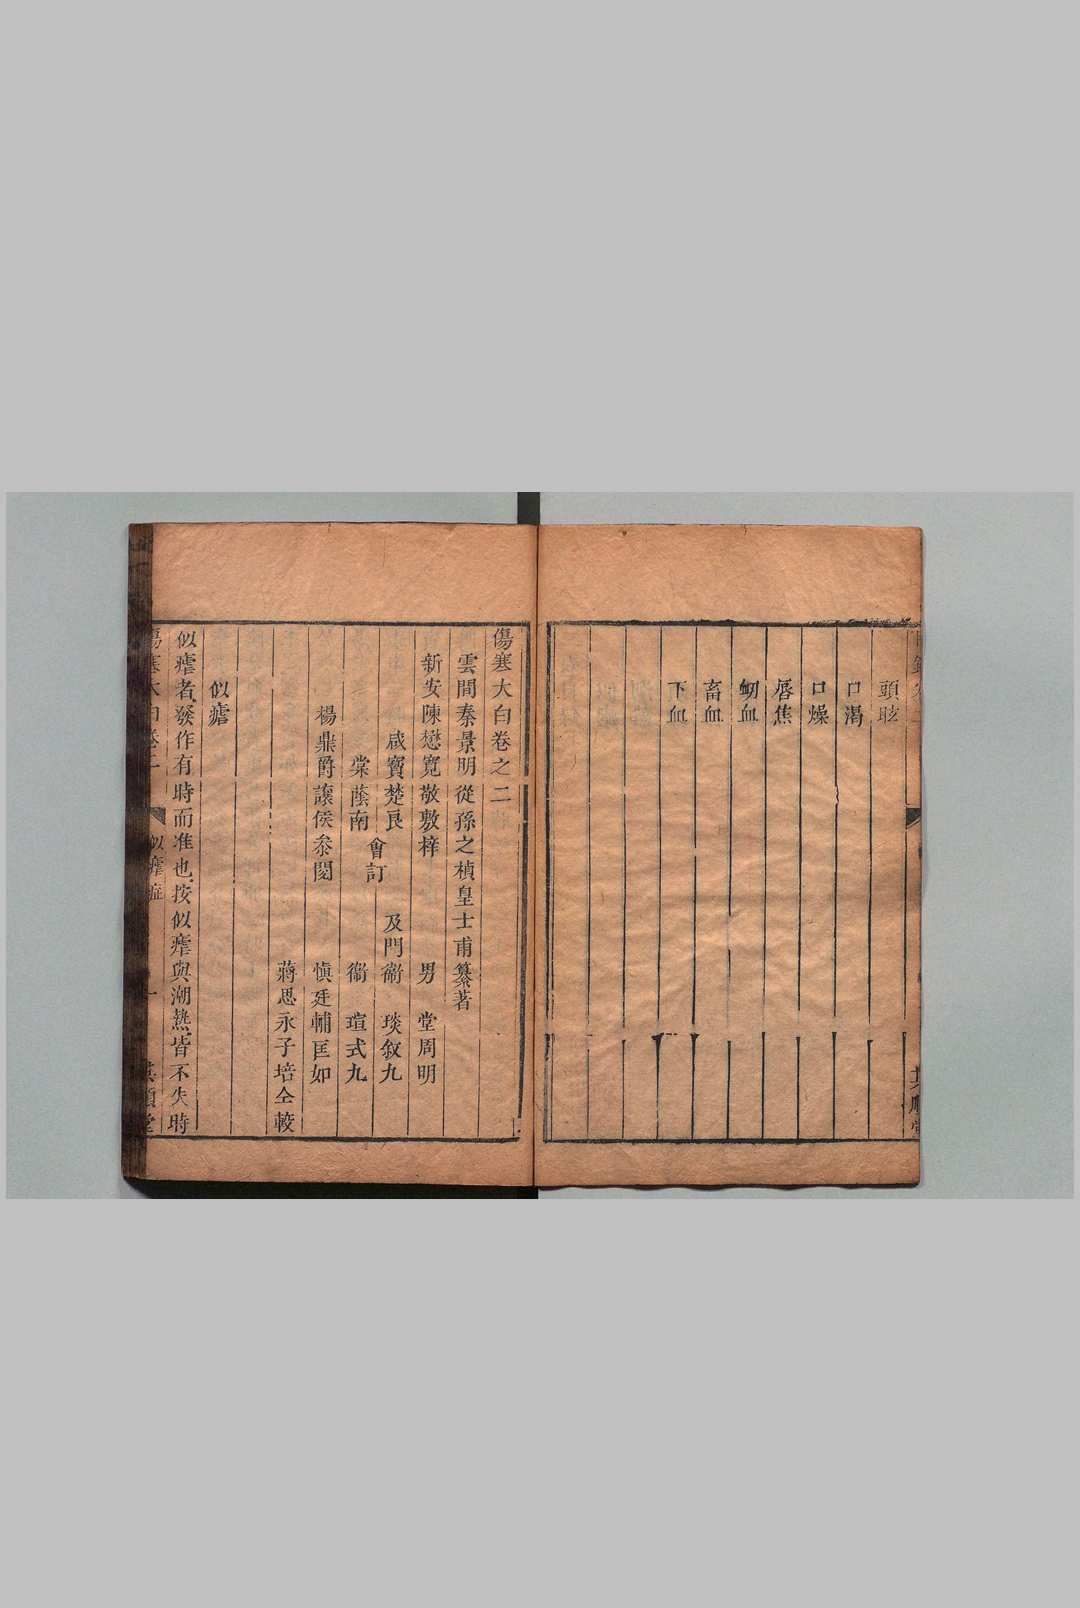 頭眩
口渴
口燥
唇焦
衂血
畜血
下血
傷寒大白卷之二
雲間秦景明從孫之楨皇士甫纂著
新安陳懋寬敬敷梓 男 堂周明
咸賓楚良 及門衞 琰敘九
會訂
棠蔭南 衞 瑄式九
楊鼎爵讓侯叅閱 愼廷輔匡如
蔣思永子培仝較
似瘧
似瘧者發作有時而准也按似瘧與潮熱皆不失時
傷寒大白卷二 似瘧症 一 其順堂